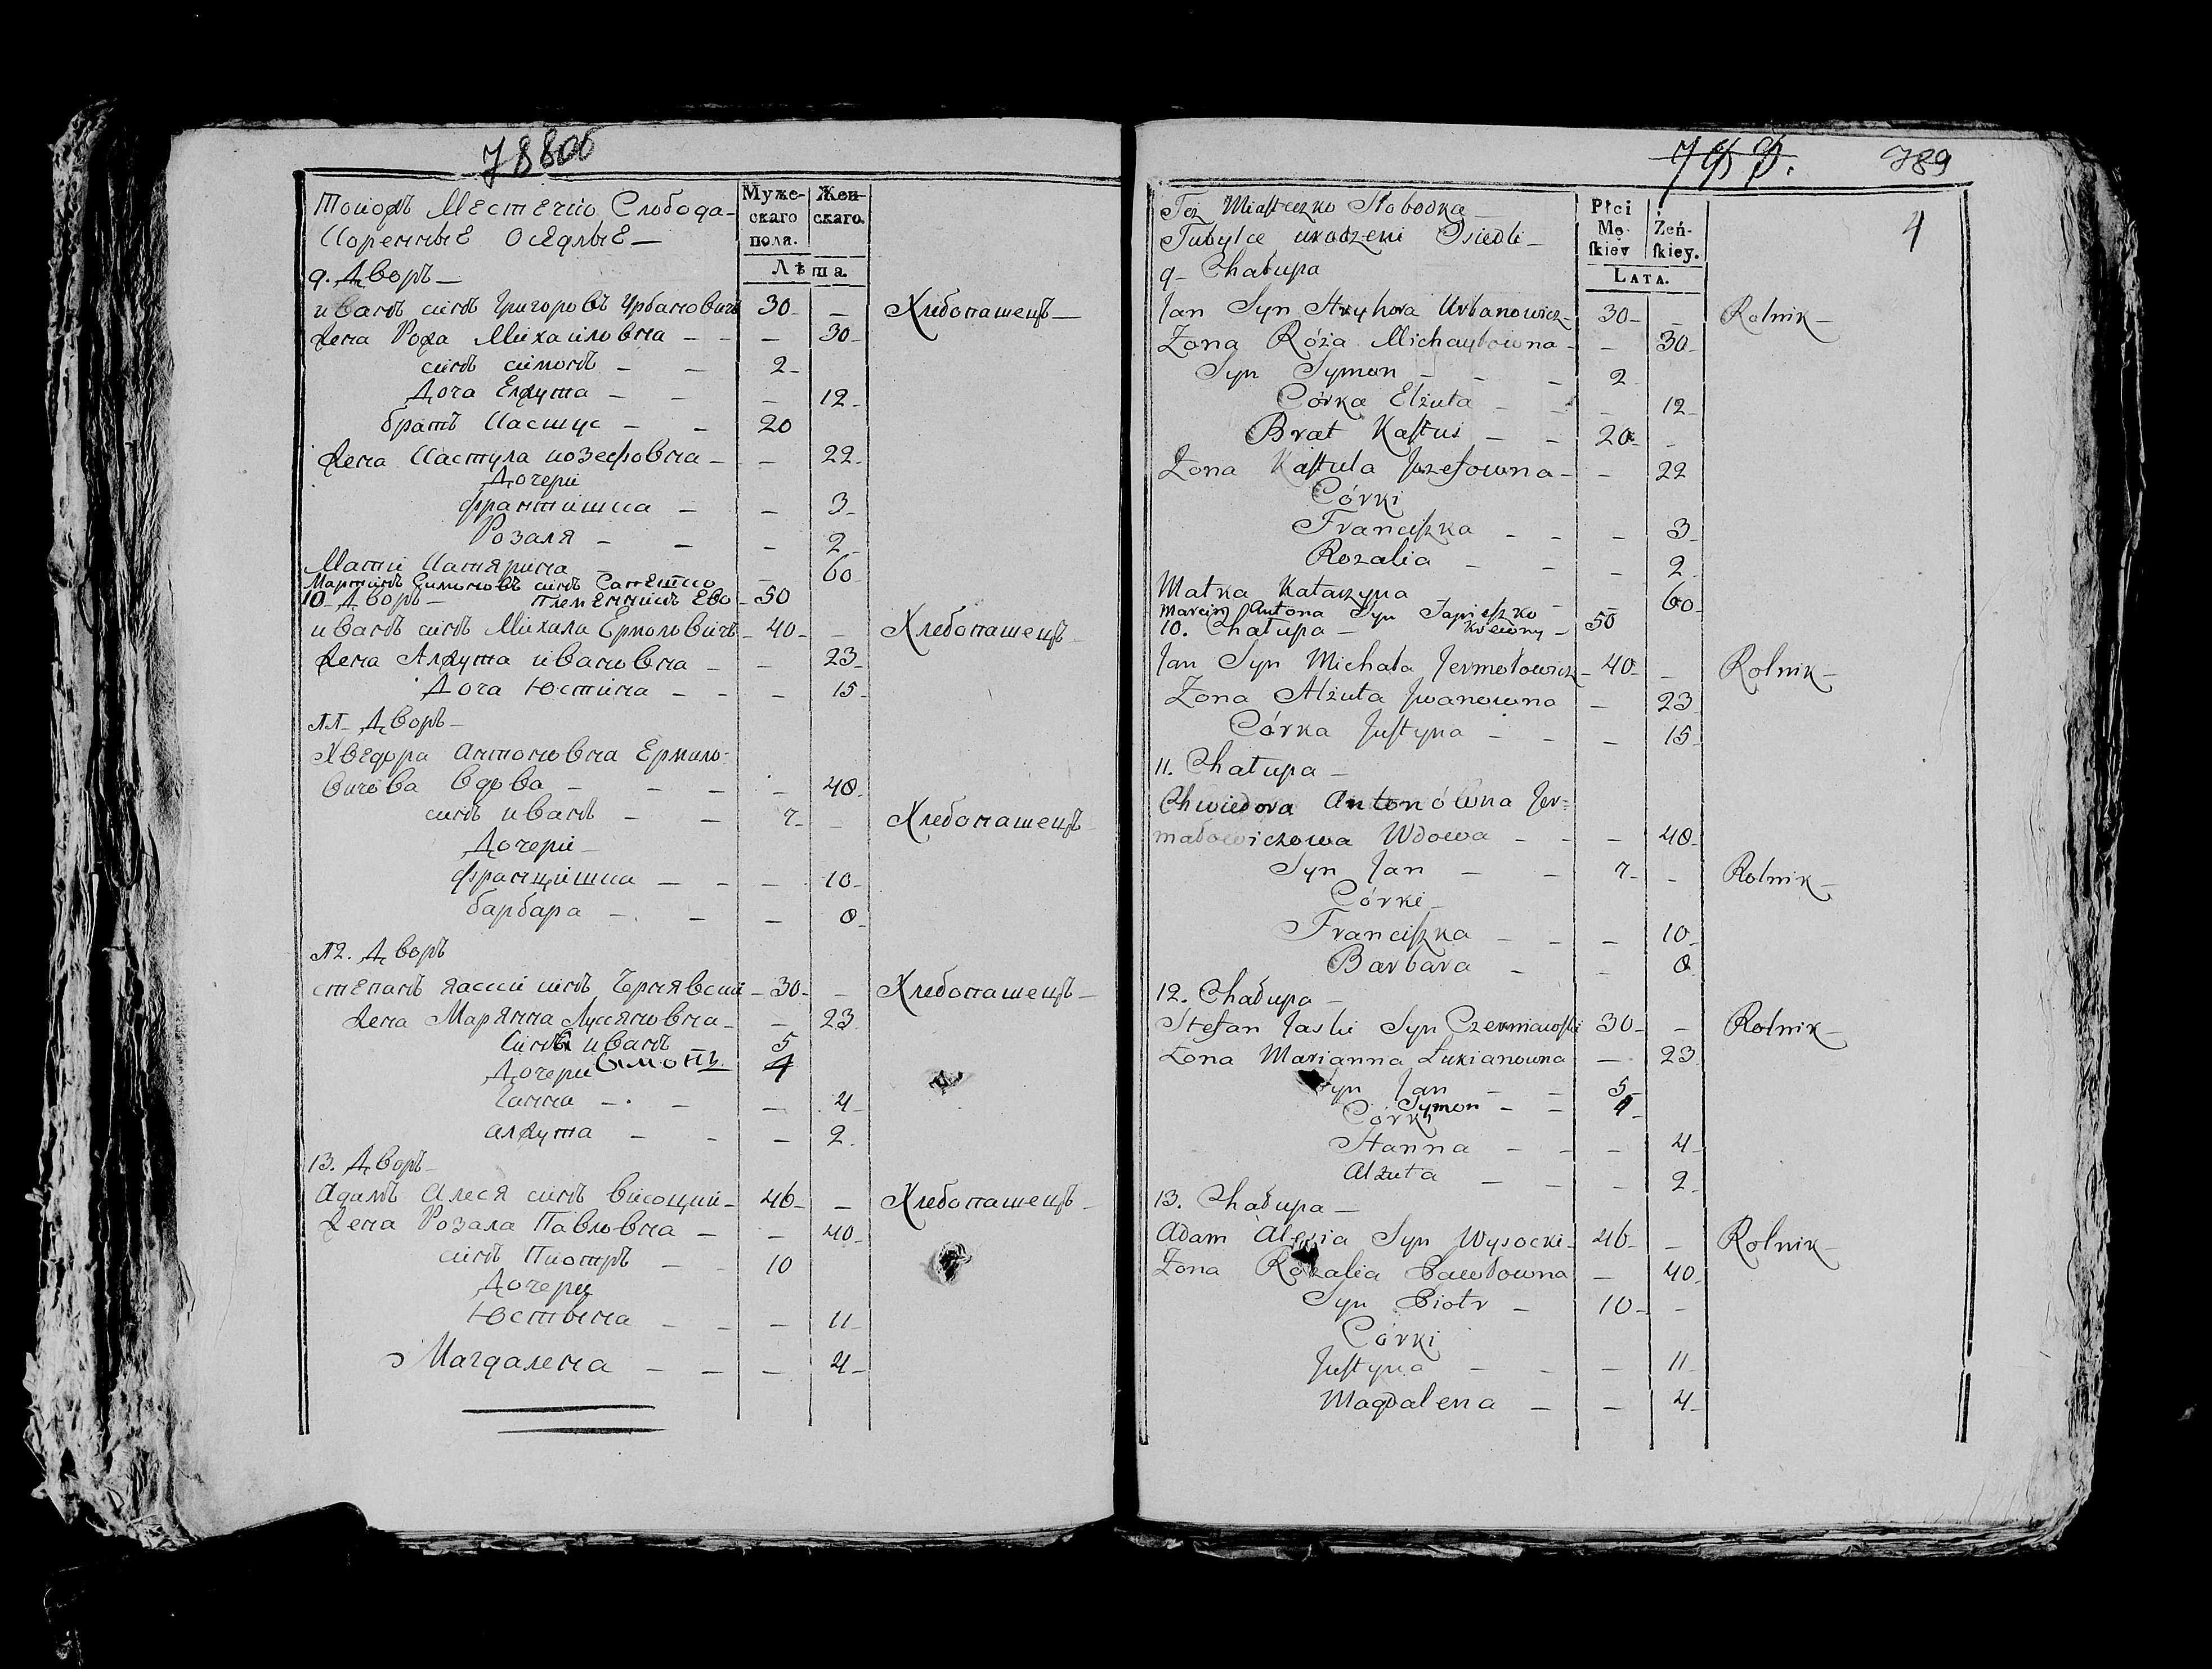 788об
Муже-
скаго
пола.
Жен-
скаго.
Лѣта.
Тоиожъ Местечко Слобода
Коренные Оседлые
9. Дворъ
иванъ синъ Григоровъ Урбановичъ 30 — Хлебопашецъ
Жена Рожа Михаиловна — 30
синъ симонъ — 2
Доча Елжута — 12
братъ Кастус — 20
Жена Кастула иозефовна — 22
Дочери
франтишка — 3
Розаля — 2
Матки Катярина — 60
Мартинъ синъ
10 Дворъ — племенникъ Ево 50
иванъ синъ Михала Ермоловичъ 40 — Хлебопашецъ
Жена Алжута ивановна — 23
Доча Юстина — 15
11 Дворъ
Хведора антоновна Ермоло-
вичева вдова — 40
синъ иванъ — 7 — Хлебопашецъ
Дочери
францишка — 10
барбара — 8
12. Дворъ
степанъ яськи синъ Чернявски 30 — Хлебопашецъ
Жена Марянна Лукяновна — 23
синъ иванъ 5
Дочери Симонъ 4
Ганна — 4
алжута — 2
13. Дворъ
Адамъ Алеся синъ високии 46 — Хлебопашецъ
Жена Розаля Павловна — 40
синъ Пиотръ — 10
Дочери
Юстына — 11
Магдалена — 4
789
4
Płci
Mę-
skiey
Żeń-
skiey.
LATA.
Toż Miasteczko Słobodka
Tubylce urodzeni Osiedli
9 Chałupa
Jan Syn Hryhora Urbanowicz 30 — Rolnik
Żona Róża Michayłowna — 30
Syn Symon — 2
Córka Elżuta — 12
Brat Kastus — 20 —
Żona Kastula Jozefowna — 22
Córki
Franciszka — 3
Rozalia — 2
Matka Katarzyna — 60
Marcin Antona Syn
10. Chałupa — 50
Jan Syn Michała Jermołowicz 40 — Rolnik
Żona Alżuta Jwanowna — 23
Córka Justyna — 15
11. Chałupa
Chwiedora Antonówna Jer=
mołowiczowa Wdowa — 40
Syn Jan — 7 — Rolnik
Córki
Franciszka — 10
Barbara — 8
12. Chałupa
Stefan Jaski Syn Czerniawski 30 — Rolnik
Żona Marianna Łukianowna — 23
Syn Jan — 5
Symon — 4
Córki
Hanna — 4
Alżuta — 2
13. Chałupa
Adam Alesia Syn Wysocki 46 — Rolnik
Żona Rozalia Pawłowna — 40
Syn Piotr — 10 —
Córki
Justyna — 11
Magdalena — 4